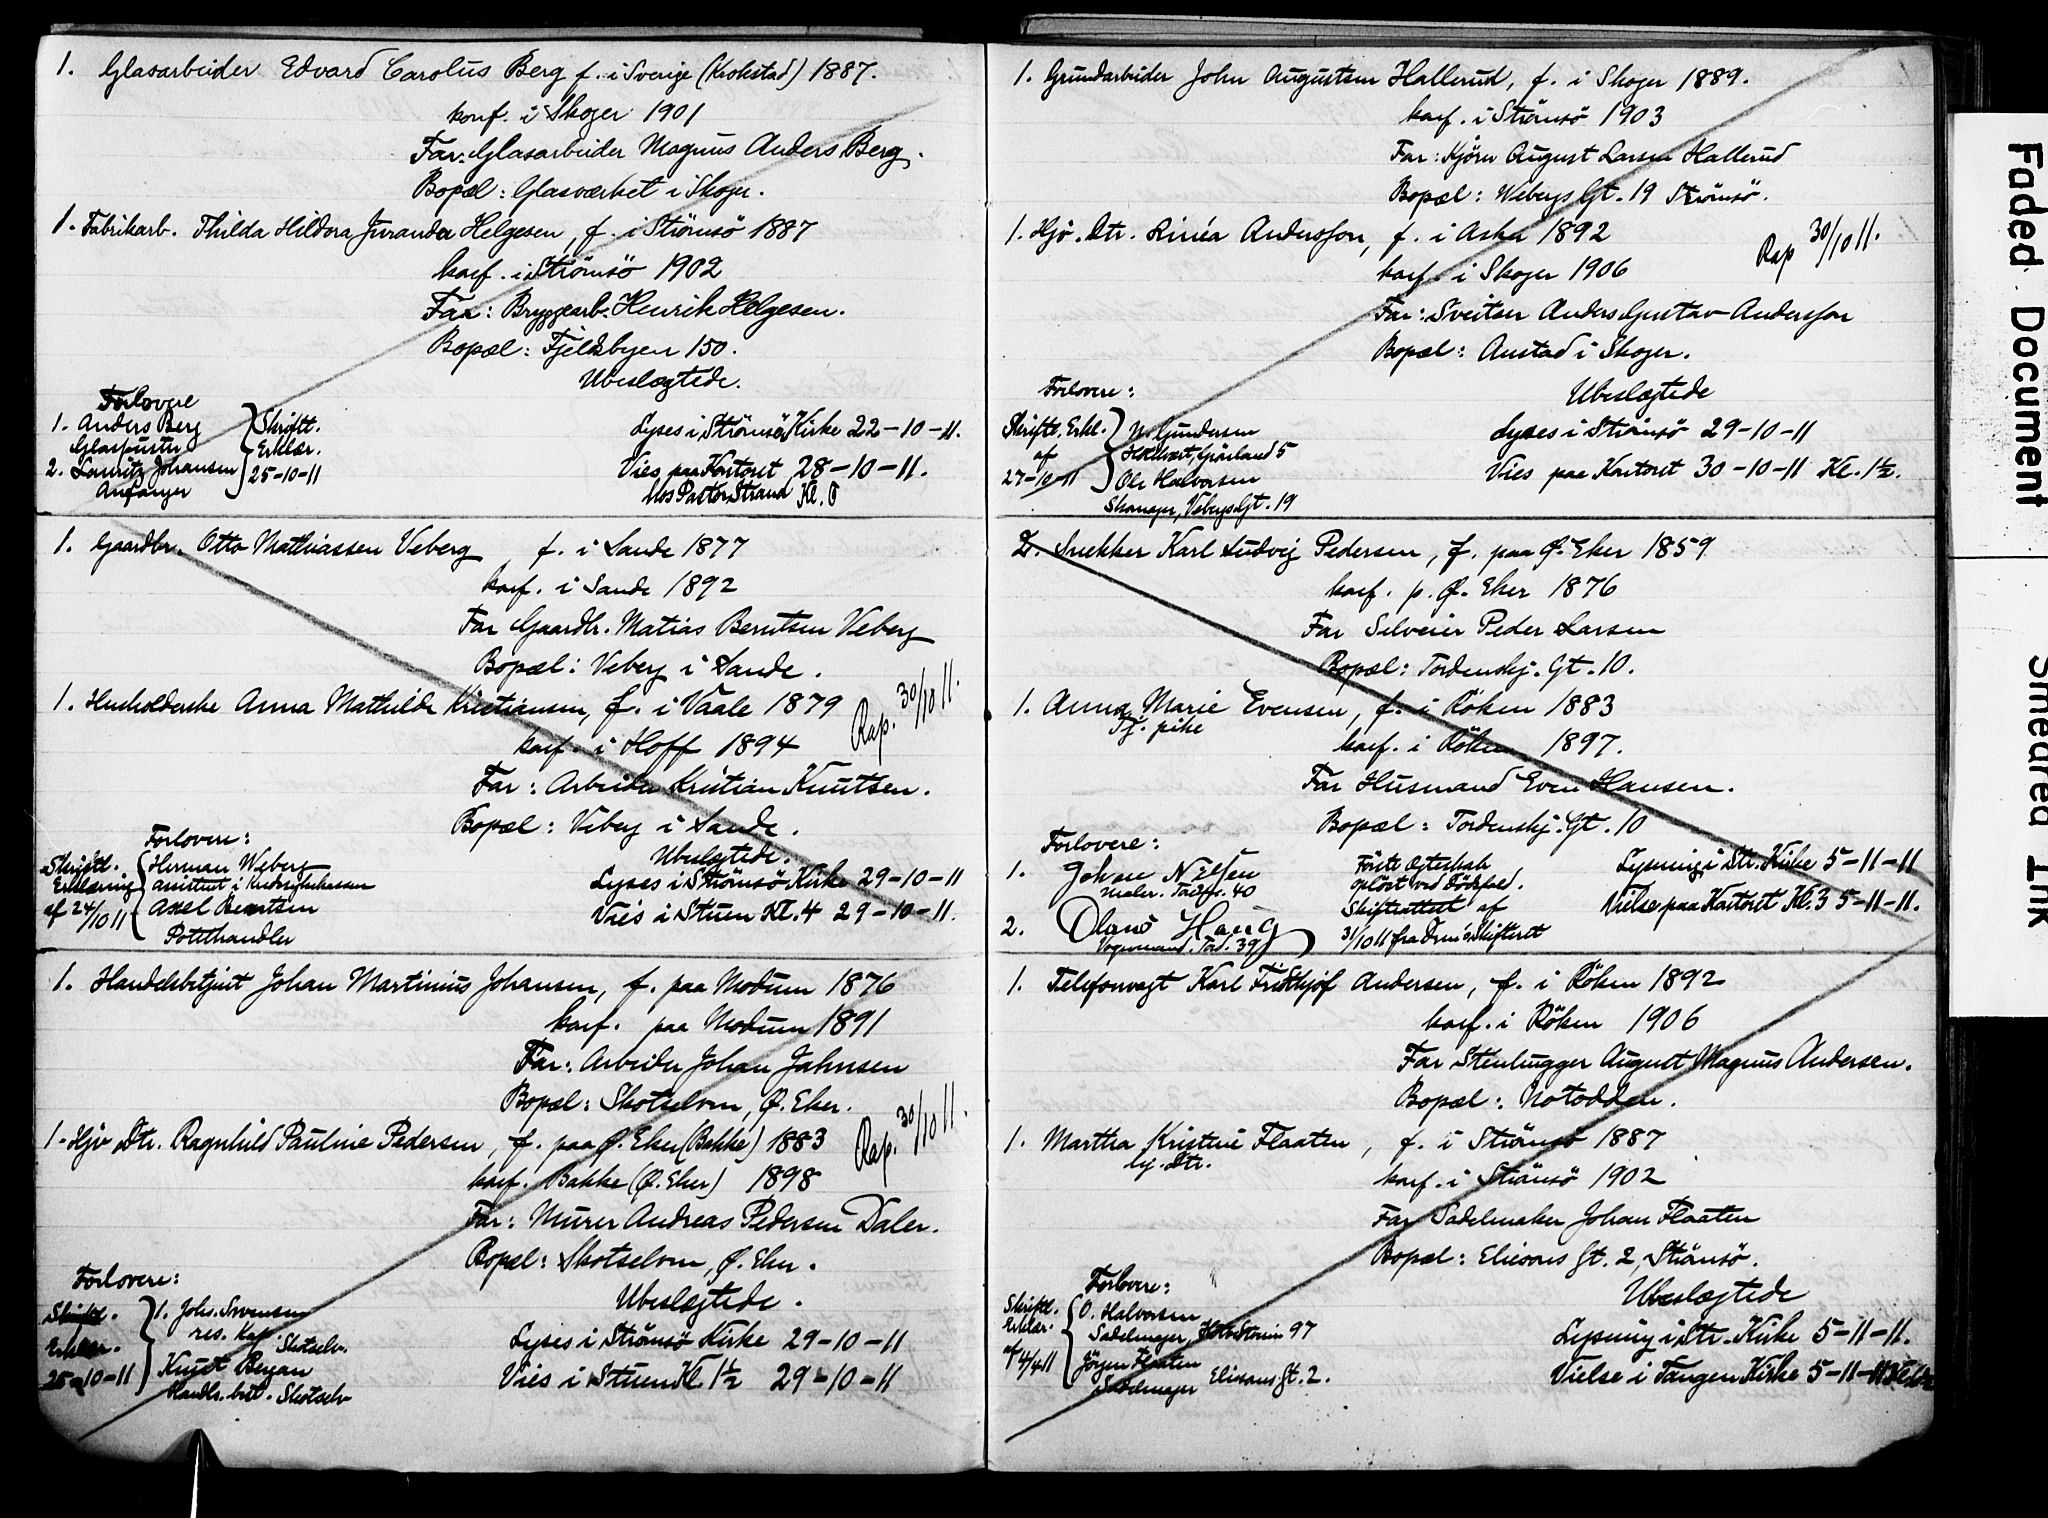 1. Glasarbeider Edvard Carolus Berg f. i Sverige (Krokstad) 1887.
konf. i Skoger 1901
Far: Glasarbeider Magnus Anders Berg.
Bopæl: Glasværket i Skoger.
1. Fabrikarb. Thilda Hildora Juranda Helgesen, f. i Strömsö 1887
konf. i Strömsö 1902
Far: Bryggearb. Henrik Helgesen.
Bopæl: Fjeldbyen 150.
Ubeslægtede.
Forlovere
1. Anders Berg
Glaspuster
2. Lauritz Johansen
Anfanger
Skriftl.
Erklær.
25-10-11
Lyses i Strömsö Kirke 22-10-11.
Vies paa Kontoret 28-10-11.
Hos Pastor Strand Kl. 6
1. Gaardbr. Otto Mathiassen Veberg f. i Sande 1877
konf. i Sande 1892
Far Gaardbr. Matias Berntsen Veberg
Bopæl: Veberg i Sande.
1. Husholderske Anna Mathilde Kristiansen, f. i Vaale 1879
Rap. 30/10 11.
konf. i Hoff 1894
Far: Arbeider Kristian Knutsen.
Bopæl: Veberg i Sande.
Ubeslægtede.
Forlovere:
Skriftl.
Erklæring
af 24/10 11
Herman Weberg
assistent i
Axel Berntsen
Lyses i Strömsö Kirke 29-10-11
Vies i Stuen Kl. 4 29-10-11.
1. Handelsbetjent Johan Martinius Johansen, f. paa Modum 1876
konf. paa Modum 1891
Far: Arbeider Johan Jahnsen
Bopæl: Skotselven, Ø. Eker.
1. Hjv Dtr. Ragnhild Pauline Pedersen, f. paa Ø. Eker (Bakke) 1883
Rap. 30/10 11.
konf. Bakke (Ø. Eker) 1898
Far: Murer Andreas Pedersen Daler.
Bopæl: Skotselven, Ø. Eker.
Ubeslægtede.
Forlovere:
Skriftl.
Erklær.
25-10-11
1. Johs. Svensen
res. Kap. Skotselv.
Knut Bergan
Handls. bet. Skotselv
Lyses i Strömsö Kirke 29-10-11
Vies i Stuen Kl. 1½ 29-10-11
1. Grundarbeider John Augustsen Hallerud, f. i Skoger 1889.
konf. i Strömsö 1903
Far: Kjörer August Larsen Hallerud
Bopæl: Webergs Gt. 19 Strömsö.
1. Hjv. Dtr. Linéa Andersson, f. i Asker 1892
Rap 30/10 11.
konf. i Skoger 1906
Far: Sveitser Anders Gustav Andersson
Bopæl: Austad i Skoger.
Ubeslægtede
Forlovere:
Skriftl. Erkl.
af
27-10-11
N. Gundersen
Grönland 5
Ole Halvorsen
Skomager, Vebergs Gt. 19
Lyses i Strömsö 29-10-11
Vies paa Kontoret 30-10-11 Kl. 1½.
2. Snekker Karl Ludvig Pedersen, f. paa Ø. Eker 1859
konf. p. Ø. Eker 1876
Far Selveier Peder Larsen
Bopæl: Tordenskj. Gt. 10.
1. Anna Marie Evensen, f. i Röken 1883
Tj. pike
konf. i Röken 1897.
Far Husmand Even Hansen.
Bopæl: Tordenskj. Gt. 10
Forlovere:
1. Johan Nilsen
Maler. Tordsk. 40
2. Olano Haug
Vognmand. Tord. 39
Förste Ægteskab
oplöst ved Dödsfald.
Skifteattest af
31/10 11 fra Drm's Skifteret
Lysning i Str. Kirke 5-11-11
Vielse paa Kontoret Kl. 3 5-11-11.
1. Telefonvagt Karl Fridthjof Andersen, f. i Röken 1892
konf. i Röken 1906
Far Stenhugger August Magnus Andersen.
Bopæl: Notodden.
1. Martha Kristine Flaaten, f. i Strömsö 1887
hj. Dtr.
konf. i Strömsö 1902
Far Sadelmaker Johan Flaaten
Bopæl: Eliesons Gt. 2, Strömsö.
Ubeslægtede
Forlovere:
Skriftl.
Erklær.
af 4/4 11
O. Halvorsen
Sadelmager, Holmstrum 97
Jörgen Flaaten
Sadelmager Eliesons Gt. 2.
Lysning i Str. Kirke 5-11-11.
Vielse i Tangen Kirke 5-11-11
Faded Document
Smeared Ink